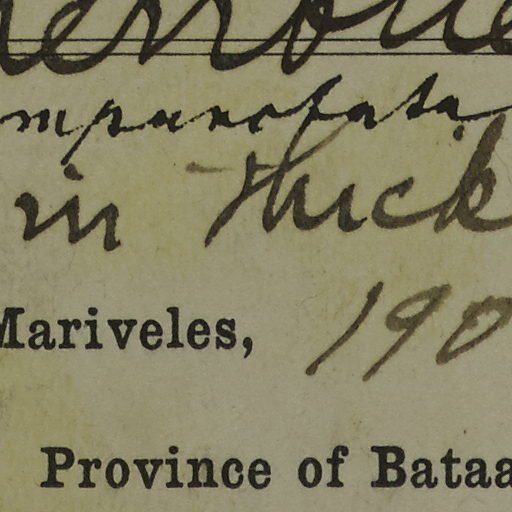 impunctata
in thick
Mariveles, 190
Province of Bataa